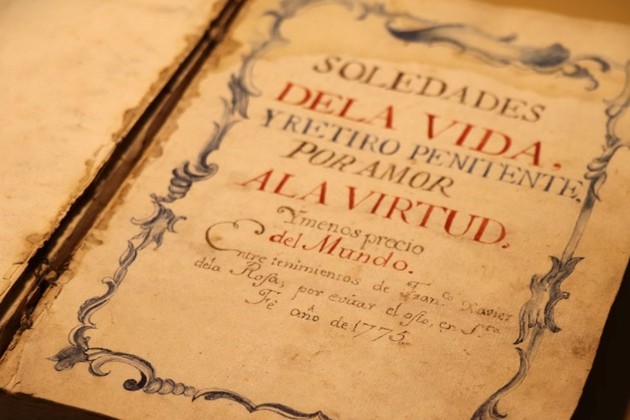 SOLEDADES
DELA VIDA,
Y RETIRO PENITENTE.
POR AMOR
A LA VIRTUD.
Y menos precio
del Mundo.
Entre tenimientos de Fran.co Xavier
dela Rosa, por evitar el osio, en S.ta
Fè año de 1775.